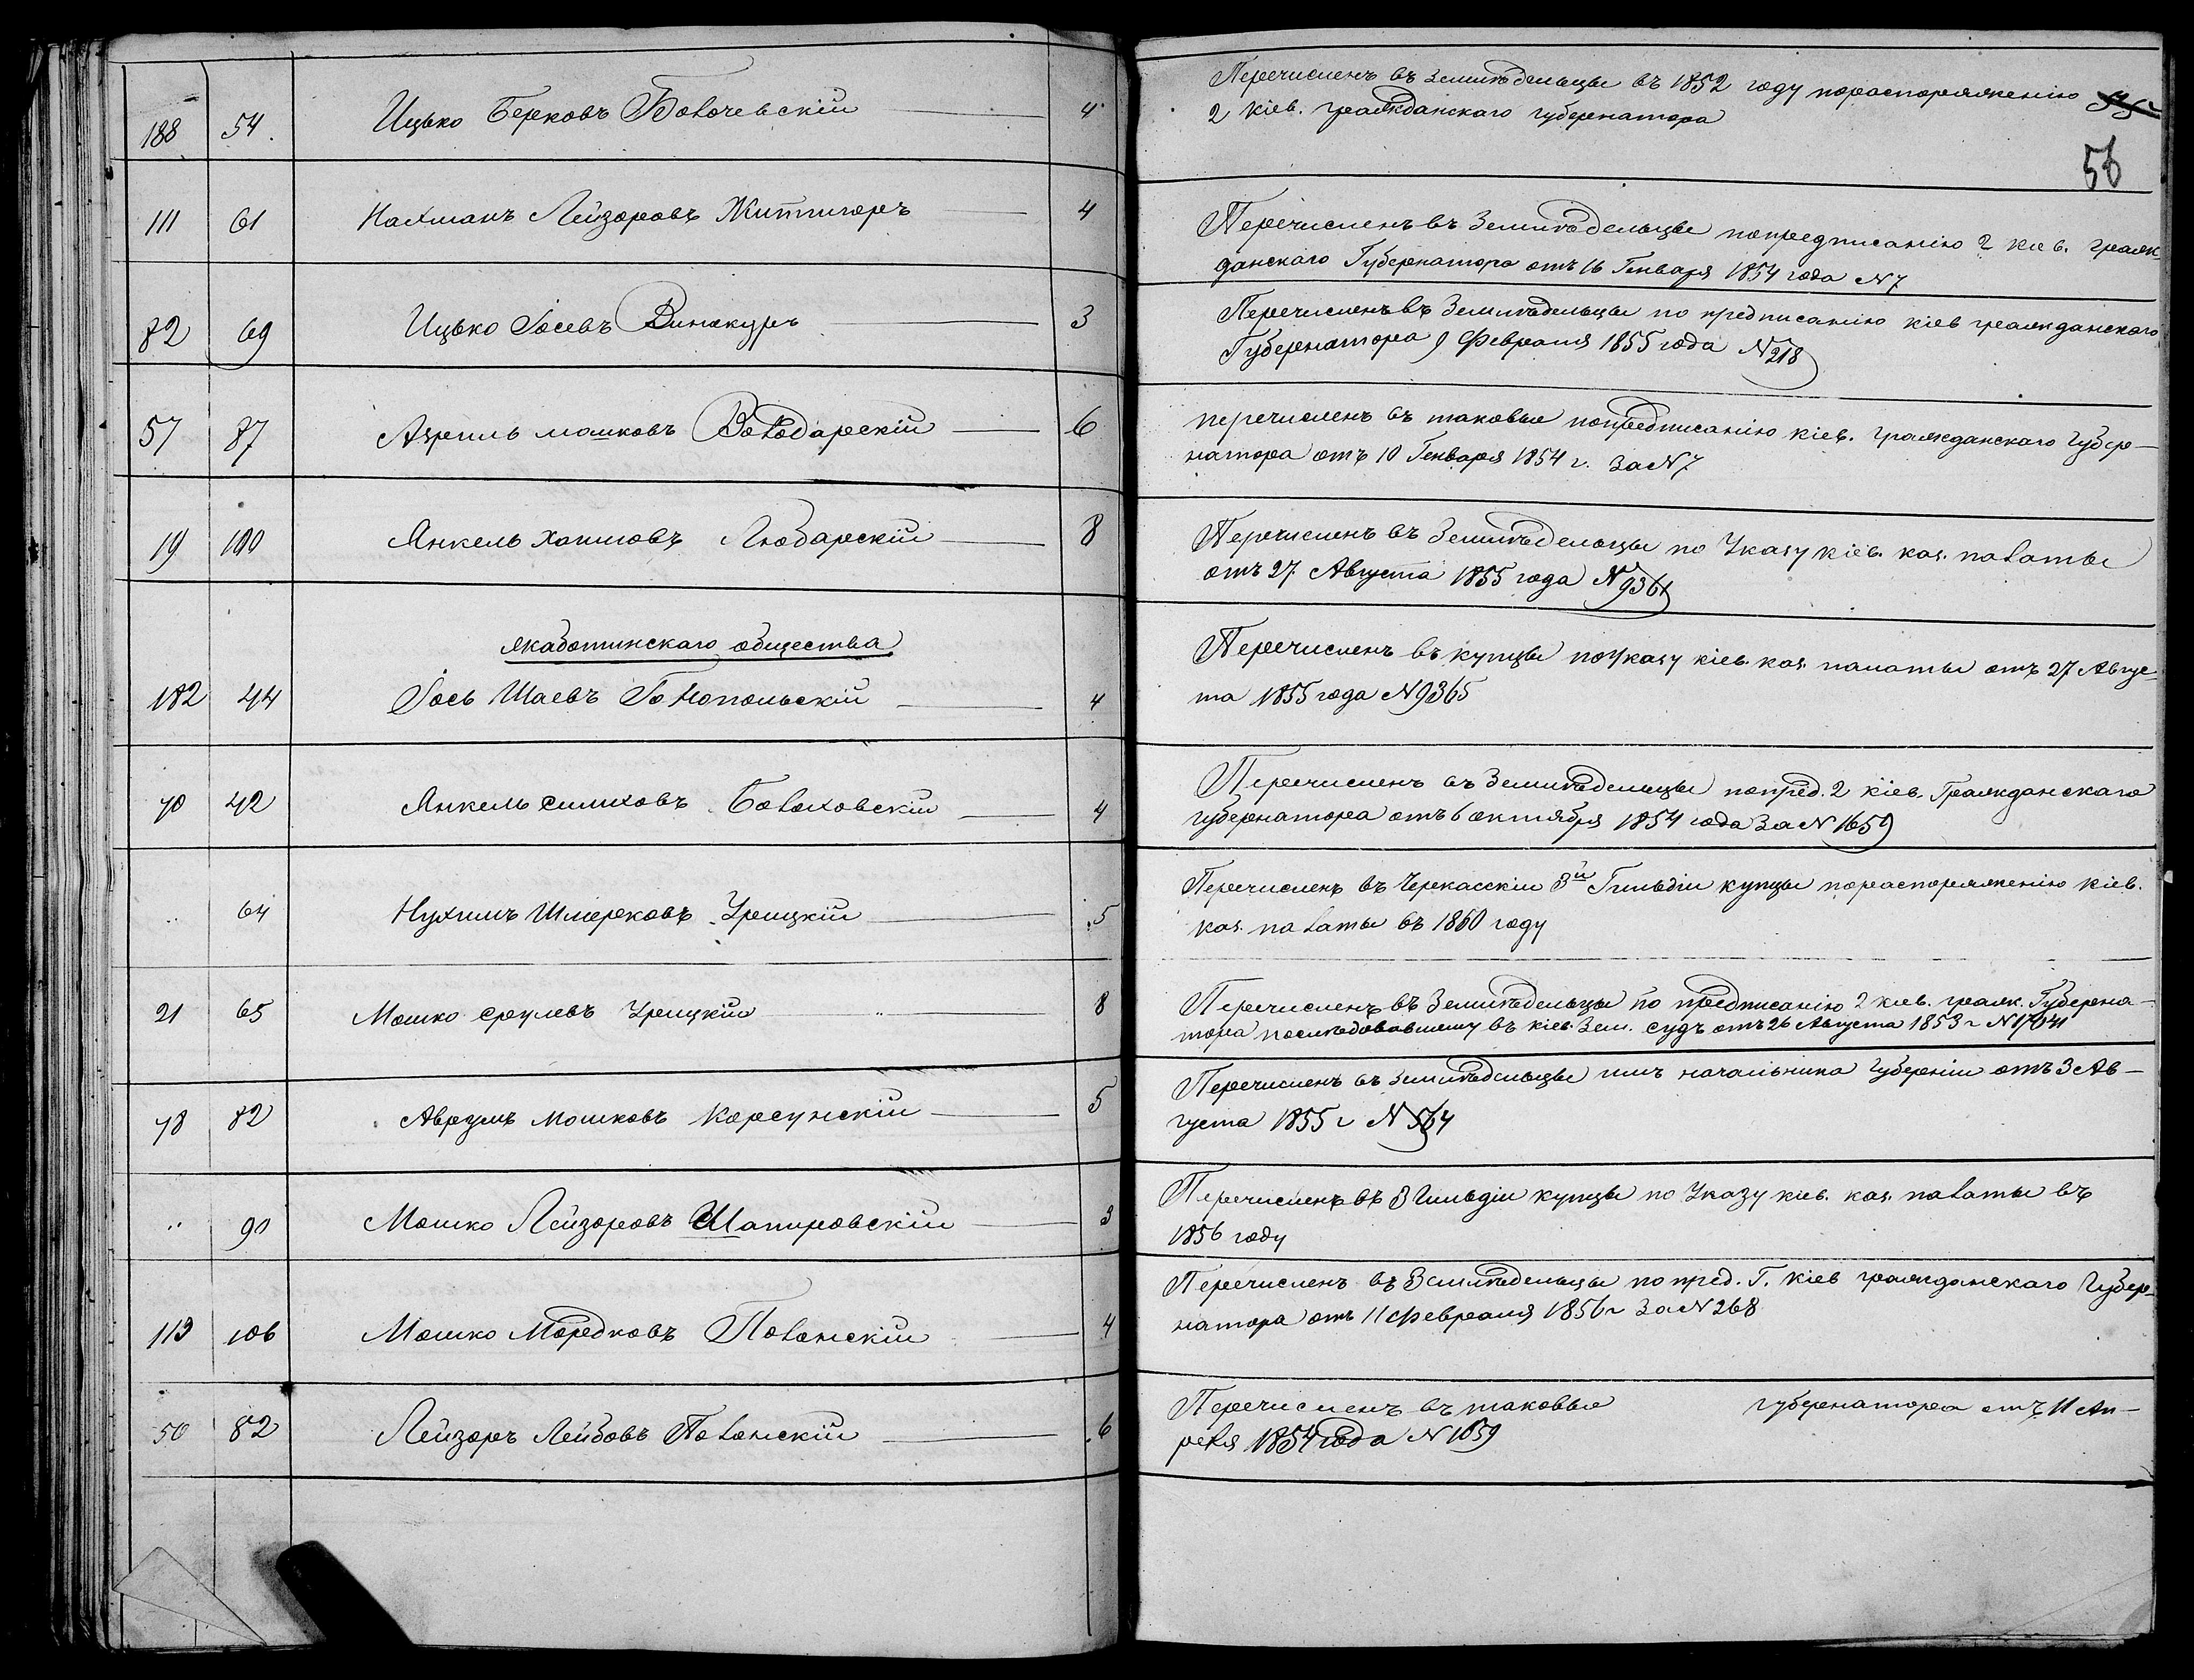 188 54. Ицько Берковъ Боlочевскій 4
Перечисленъ въ землѣдельцы въ 1852 году пораспоряженію
2 кіев. гражданскаго губернатора
56
111 61 Нахманъ Лейзоровъ Житницеръ 4
Перечисленъ въ Землѣдельцы попредписанію 2 кіев. граж-
данскаго Губернатора отъ 16 Генваря 1854 года N 7
82 69 Ицько Іосевъ Винокуръ 3
Перечисленъ въ Землѣдельцы по предписанію кіев гражданскаго
Губернатора 9 Февраля 1855 года N 218
57 87 Азрииль мошковъ Володарскій 6
перечисленъ въ таковые попредписанію кіев. гражданскаго Губер-
натора отъ 10 Генваря 1854 г. За N 7
19 100 Янкель хаимовъ Любарскій 8
Перечисленъ въ Землѣдельцы по Указу кіев. каз. палаты
отъ 27 Августа 1855 года N 9361
общества
182 44 Іось Шаевъ Гонопольскій 4
Перечисленъ въ купцы поуказу кіев. каз. палаты отъ 27 Авгус-
та 1855 года N 9365
70 42 Янкель симховъ Болховскій 4
Перечисленъ въ Землѣдельцы попред. 2 кіев. Гражданскаго
губернатора отъ 6 октября 1854 года За N 1659
.. 64 Нухимъ Шмерковъ Урицкій 5
Перечисленъ въ Черкасскіи 3й Гильдіи купцы пораспоряженію кіев.
каз. палаты въ 1860 году
21 65 Мошко срулевъ Урицкій 8
Перечисленъ въ Землѣдельцы по предписанію 2 кіев. граж. Губерна-
тора послѣдовавшему въ кіев. Зем. судъ отъ 26 Августа 1853 г N 17041
78 82 Аврумъ мошковъ Корсунскій 5
Перечисленъ въ землѣдельцы начальника Губерніи отъ 3 Ав-
густа 1855 г N 564
.. 90 Мошко Лейзоровъ Шапировскій 3
Перечисленъ въ 3 Гильдіи купцы по Указу кіев. каз. палаты въ
1856 году
113 106 Мошко Мордковъ Полонскій 4
Перечисленъ въ Землѣдельцы по пред. Г. кіев гражданскаго Губер-
натора отъ 11 Февраля 1856 г За N 268
50 82 Лейзоръ Лейбовъ Полонскій 6
Перечисленъ въ таковые губернатора отъ 11 Ап-
реля 1854 года N 1659